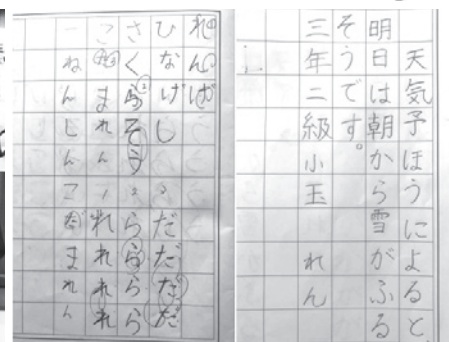 天気予ほうによると、
明日は朝から雪がふる
そうです。
三年二級小玉 れん
れんげ
ひなげし だだだ
さくらそう らららら
こだまれん れれれれ
一ねんじんこだまれん